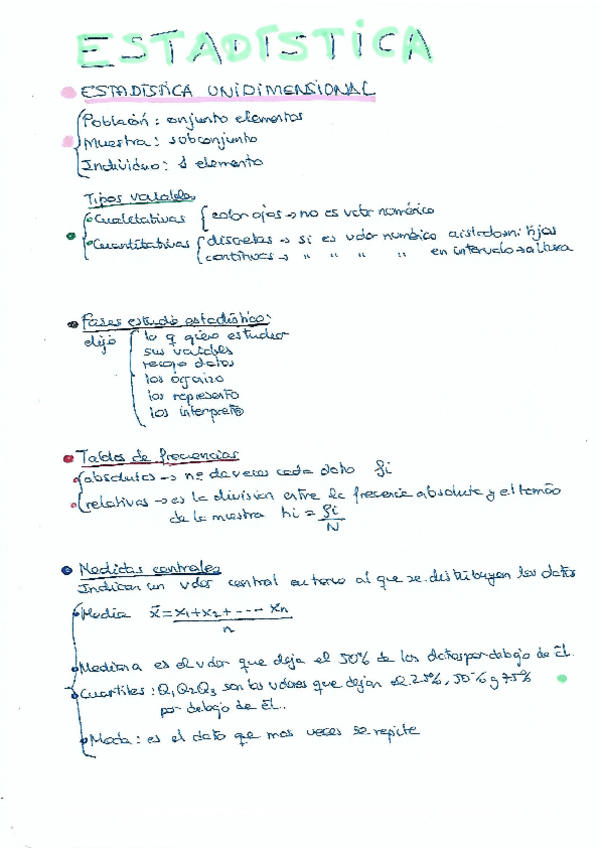 ESTADÍSTICA
ESTADÍSTICA UNIDIMENSIONAL
Población: conjunto elementos
Muestra: subconjunto
Individuo: 1 elemento
Tipos variables
Cualitativas { color ojos → no es valor numérico
Cuantitativas { discretas → si es valor numérico aislado: hijos
continuas → " " " " en intervalo → altura
Fases estudio estadístico:
elijo lo q quiero estudiar
sus variables
recojo datos
los organizo
los represento
los interpreto
Tablas de frecuencias
absolutas → nº de veces cada dato fi
relativas → es la división entre la frecuencia absoluta y el tamaño
de la muestra hi = fi/N
Medidas centrales
Indican un valor central en torno al que se distribuyen los datos
Media x̄ = x1 + x2 + ---- xn / n
Mediana es el valor que deja el 50% de los datos por debajo de ÉL.
Cuartiles: Q1 Q2 Q3 son los valores que dejan el 25%, 50% y 75%
por debajo de ÉL..
Moda: es el dato que mas veces se repite